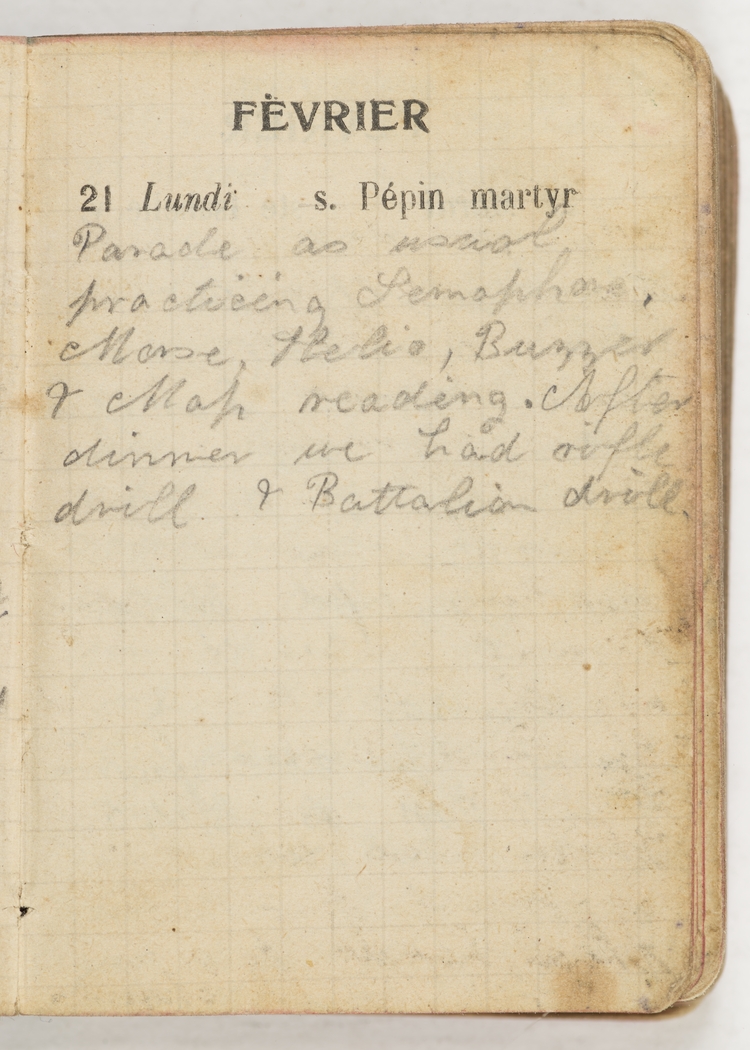 FÉVRIER
21 Lundi s. Pépin martyr
Parade as usual
practiceing Semaphore,
Morse, Helio, Buzzer
& Map reading. After
dinner we had rifle
drill & Battalion drill.